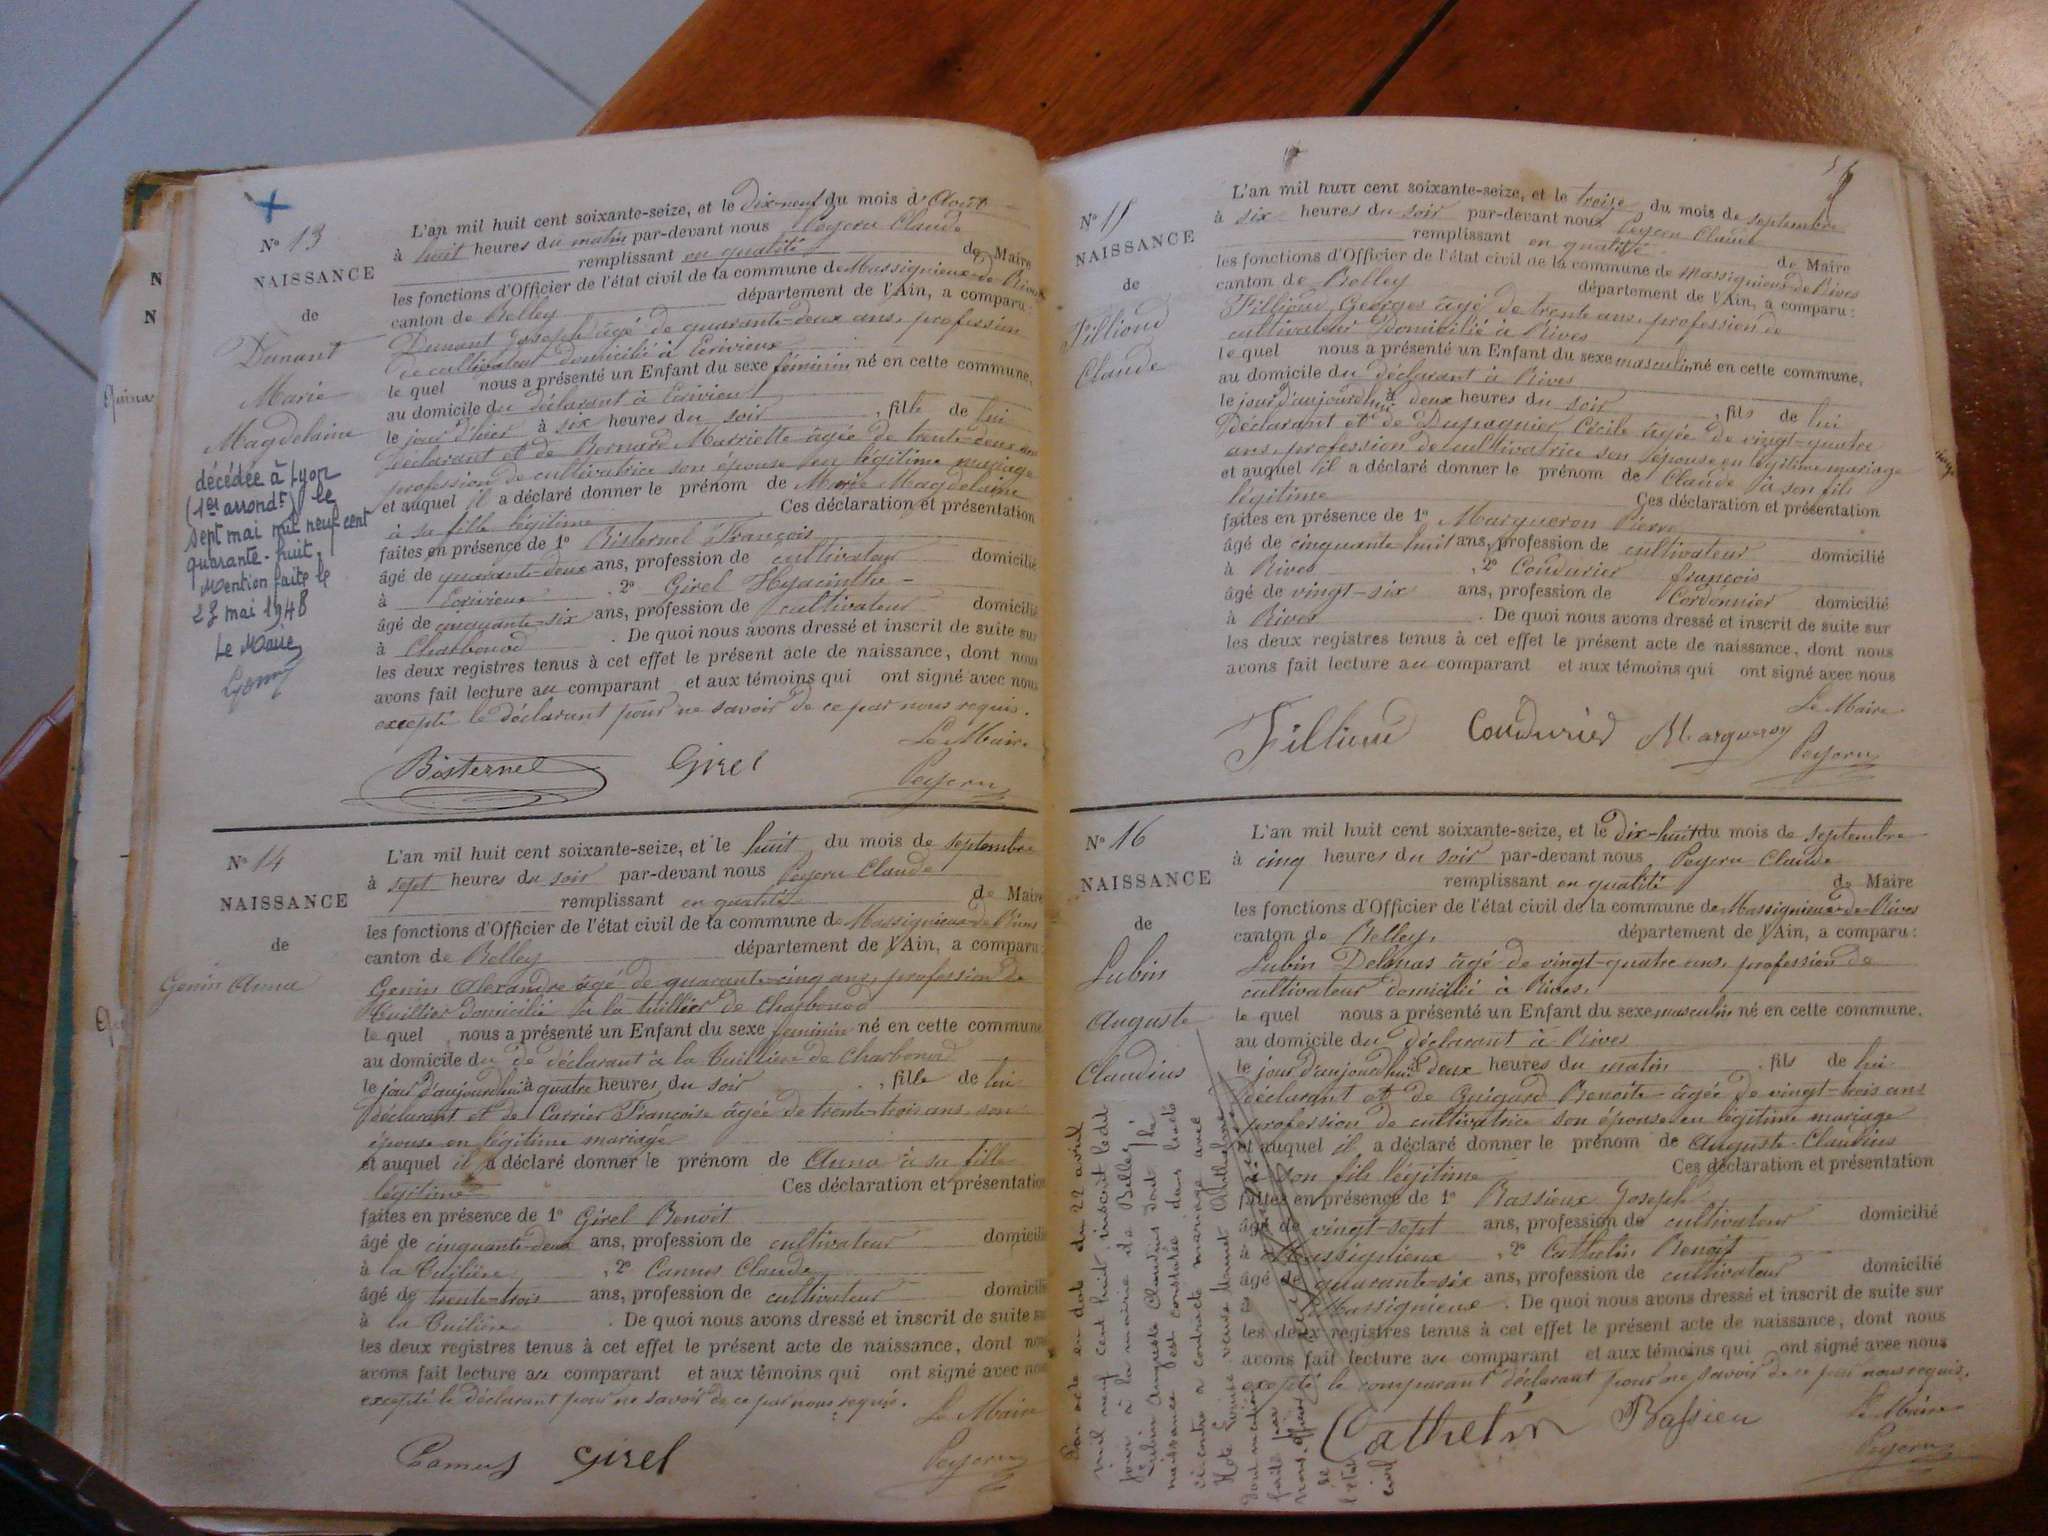 N
N
Quina
N° 13
NAISSANCE
de
Dunant
Marie
Magdelaine
décédée à Lyon
(1er arrondt) le
sept mai mil neuf cent
quarante-huit.
Mention faite le
23 mai 1948
Le Maire
L'an mil huit cent soixante-seize, et le dix-neuf du mois d'Août
à huit heures du matin par-devant nous Peysru Claude
remplissant en qualité de Maire
les fonctions d'Officier de l'état civil de la commune de Massignieux-de-Rives
canton de Belley département de l'Ain, a comparu :
Dunant Joseph âgé de quarante-deux ans, profession
de cultivateur domicilié à Ecrivieux
le quel nous a présenté un Enfant du sexe féminin né en cette commune,
au domicile du déclarant à Ecrivieux
le jour d'hier à six heures du soir, fille de lui
déclarant et de Bernard Marriette âgée de trente-deux ans
profession de cultivatrice son épouse en légitime mariage
et auquel il a déclaré donner le prénom de Marie Magdelaine
à sa fille légitime Ces déclaration et présentation
faites en présence de 1° Bisternel François
âgé de quarante-deux ans, profession de cultivateur domicilié
à Ecrivieux, 2° Girel Hyacinthe
âgé de cinquante-six ans, profession de cultivateur domicilié
à Charbonod. De quoi nous avons dressé et inscrit de suite sur
les deux registres tenus à cet effet le présent acte de naissance, dont nous
avons fait lecture au comparant et aux témoins qui ont signé avec nous
excepté le déclarant pour ne savoir de ce par nous requis.
Le Maire
Bisternel Girel Peysru
N° 14
NAISSANCE
de
Genin Anna
L'an mil huit cent soixante-seize, et le huit du mois de septembre
à sept heures du soir par-devant nous Peysru Claude
remplissant en qualité de Maire
les fonctions d'Officier de l'état civil de la commune de Massignieux-de-Rives
canton de Belley département de l'Ain, a comparu :
Genin Alexandre âgé de quarante-cinq ans, profession de
Tuillier domicilié à la tuillier de Charbonod
le quel nous a présenté un Enfant du sexe féminin né en cette commune
au domicile du de déclarant à la Tuillière de Charbonod
le jour d'aujourdhui à quatre heures du soir, fille de lui
déclarant et de Carrier Françoise âgée de trente-trois ans son
épouse en légitime mariage
et auquel il a déclaré donner le prénom de Anna à sa fille
légitime Ces déclaration et présentation
faites en présence de 1° Girel Benoit
âgé de cinquante-deux ans, profession de cultivateur domicilié
à la Tuilière, 2° Camus Claude
âgé de trente-trois ans, profession de cultivateur domicilié
à la Tuilière. De quoi nous avons dressé et inscrit de suite sur
les deux registres tenus à cet effet le présent acte de naissance, dont nous
avons fait lecture au comparant et aux témoins qui ont signé avec nous
excepté le déclarant pour ne savoir de ce par nous requis.
Le Maire
Camus Girel Peysru
N° 15
NAISSANCE
de
Filliond
Claude
L'an mil huit cent soixante-seize, et le treize du mois de septembre
à six heures du soir par-devant nous Peysru Claude
remplissant en qualité de Maire
les fonctions d'Officier de l'état civil de la commune de Massignieux-de-Rives
canton de Belley département de l'Ain, a comparu :
Filliond Georges âgé de trente ans, profession de
cultivateur domicilié à Rives
le quel nous a présenté un Enfant du sexe masculin né en cette commune,
au domicile du déclarant à Rives
le jour d'aujourdhui à deux heures du soir, fils de lui
déclarant et de Dupagnier Cécile âgée de vingt-quatre
ans, profession de cultivatrice son épouse en légitime mariage
et auquel il a déclaré donner le prénom de Claude à son fils
légitime Ces déclaration et présentation
faites en présence de 1° Margueron Pierre
âgé de cinquante huit ans, profession de cultivateur domicilié
à Rives, 2° Condurier françois
âgé de vingt-six ans, profession de Cordonnier domicilié
à Rives. De quoi nous avons dressé et inscrit de suite sur
les deux registres tenus à cet effet le présent acte de naissance, dont nous
avons fait lecture au comparant et aux témoins qui ont signé avec nous
Le Maire
Filliond Condurier Margueron Peysru
N° 16
NAISSANCE
de
Lubin
Auguste
Claudius
L'an mil huit cent soixante-seize, et le dix-huit du mois de septembre
à cinq heures du soir par-devant nous Peysru Claude
remplissant en qualité de Maire
les fonctions d'Officier de l'état civil de la commune de Massignieux-de-Rives
canton de Belley, département de l'Ain, a comparu :
Lubin âgé de vingt-quatre ans, profession de
cultivateur domicilié à Rives,
le quel nous a présenté un Enfant du sexe masculin né en cette commune,
au domicile du déclarant à Rives
le jour d'aujourdhui à deux heures du matin, fils de lui
déclarant et de Guigard Benoîte âgée de vingt-trois ans
profession de cultivatrice son épouse en légitime mariage
et auquel il a déclaré donner le prénom de Auguste-Claudius
à son fils légitime Ces déclaration et présentation
faites en présence de 1° Rassieux Joseph
âgé de vingt-sept ans, profession de cultivateur domicilié
à Massignieux, 2° Cathelin Benoit
âgé de quarante-six ans, profession de cultivateur domicilié
à Massignieux. De quoi nous avons dressé et inscrit de suite sur
les deux registres tenus à cet effet le présent acte de naissance, dont nous
avons fait lecture au comparant et aux témoins qui ont signé avec nous
excepté le comparant déclarant pour ne savoir de ce par nous requis.
Le Maire
Cathelin Rassieu Peysru
Par acte en date du 22 avril
mil neuf cent huit, inscrit ledit
jour à la mairie de Belley,
Lubin Auguste Claudius dont la
naissance est constatée dans l'acte
ci-contre a contracté mariage avec
Louise veuve
Dont mention
faite par
nous officier
de
l'état
civil